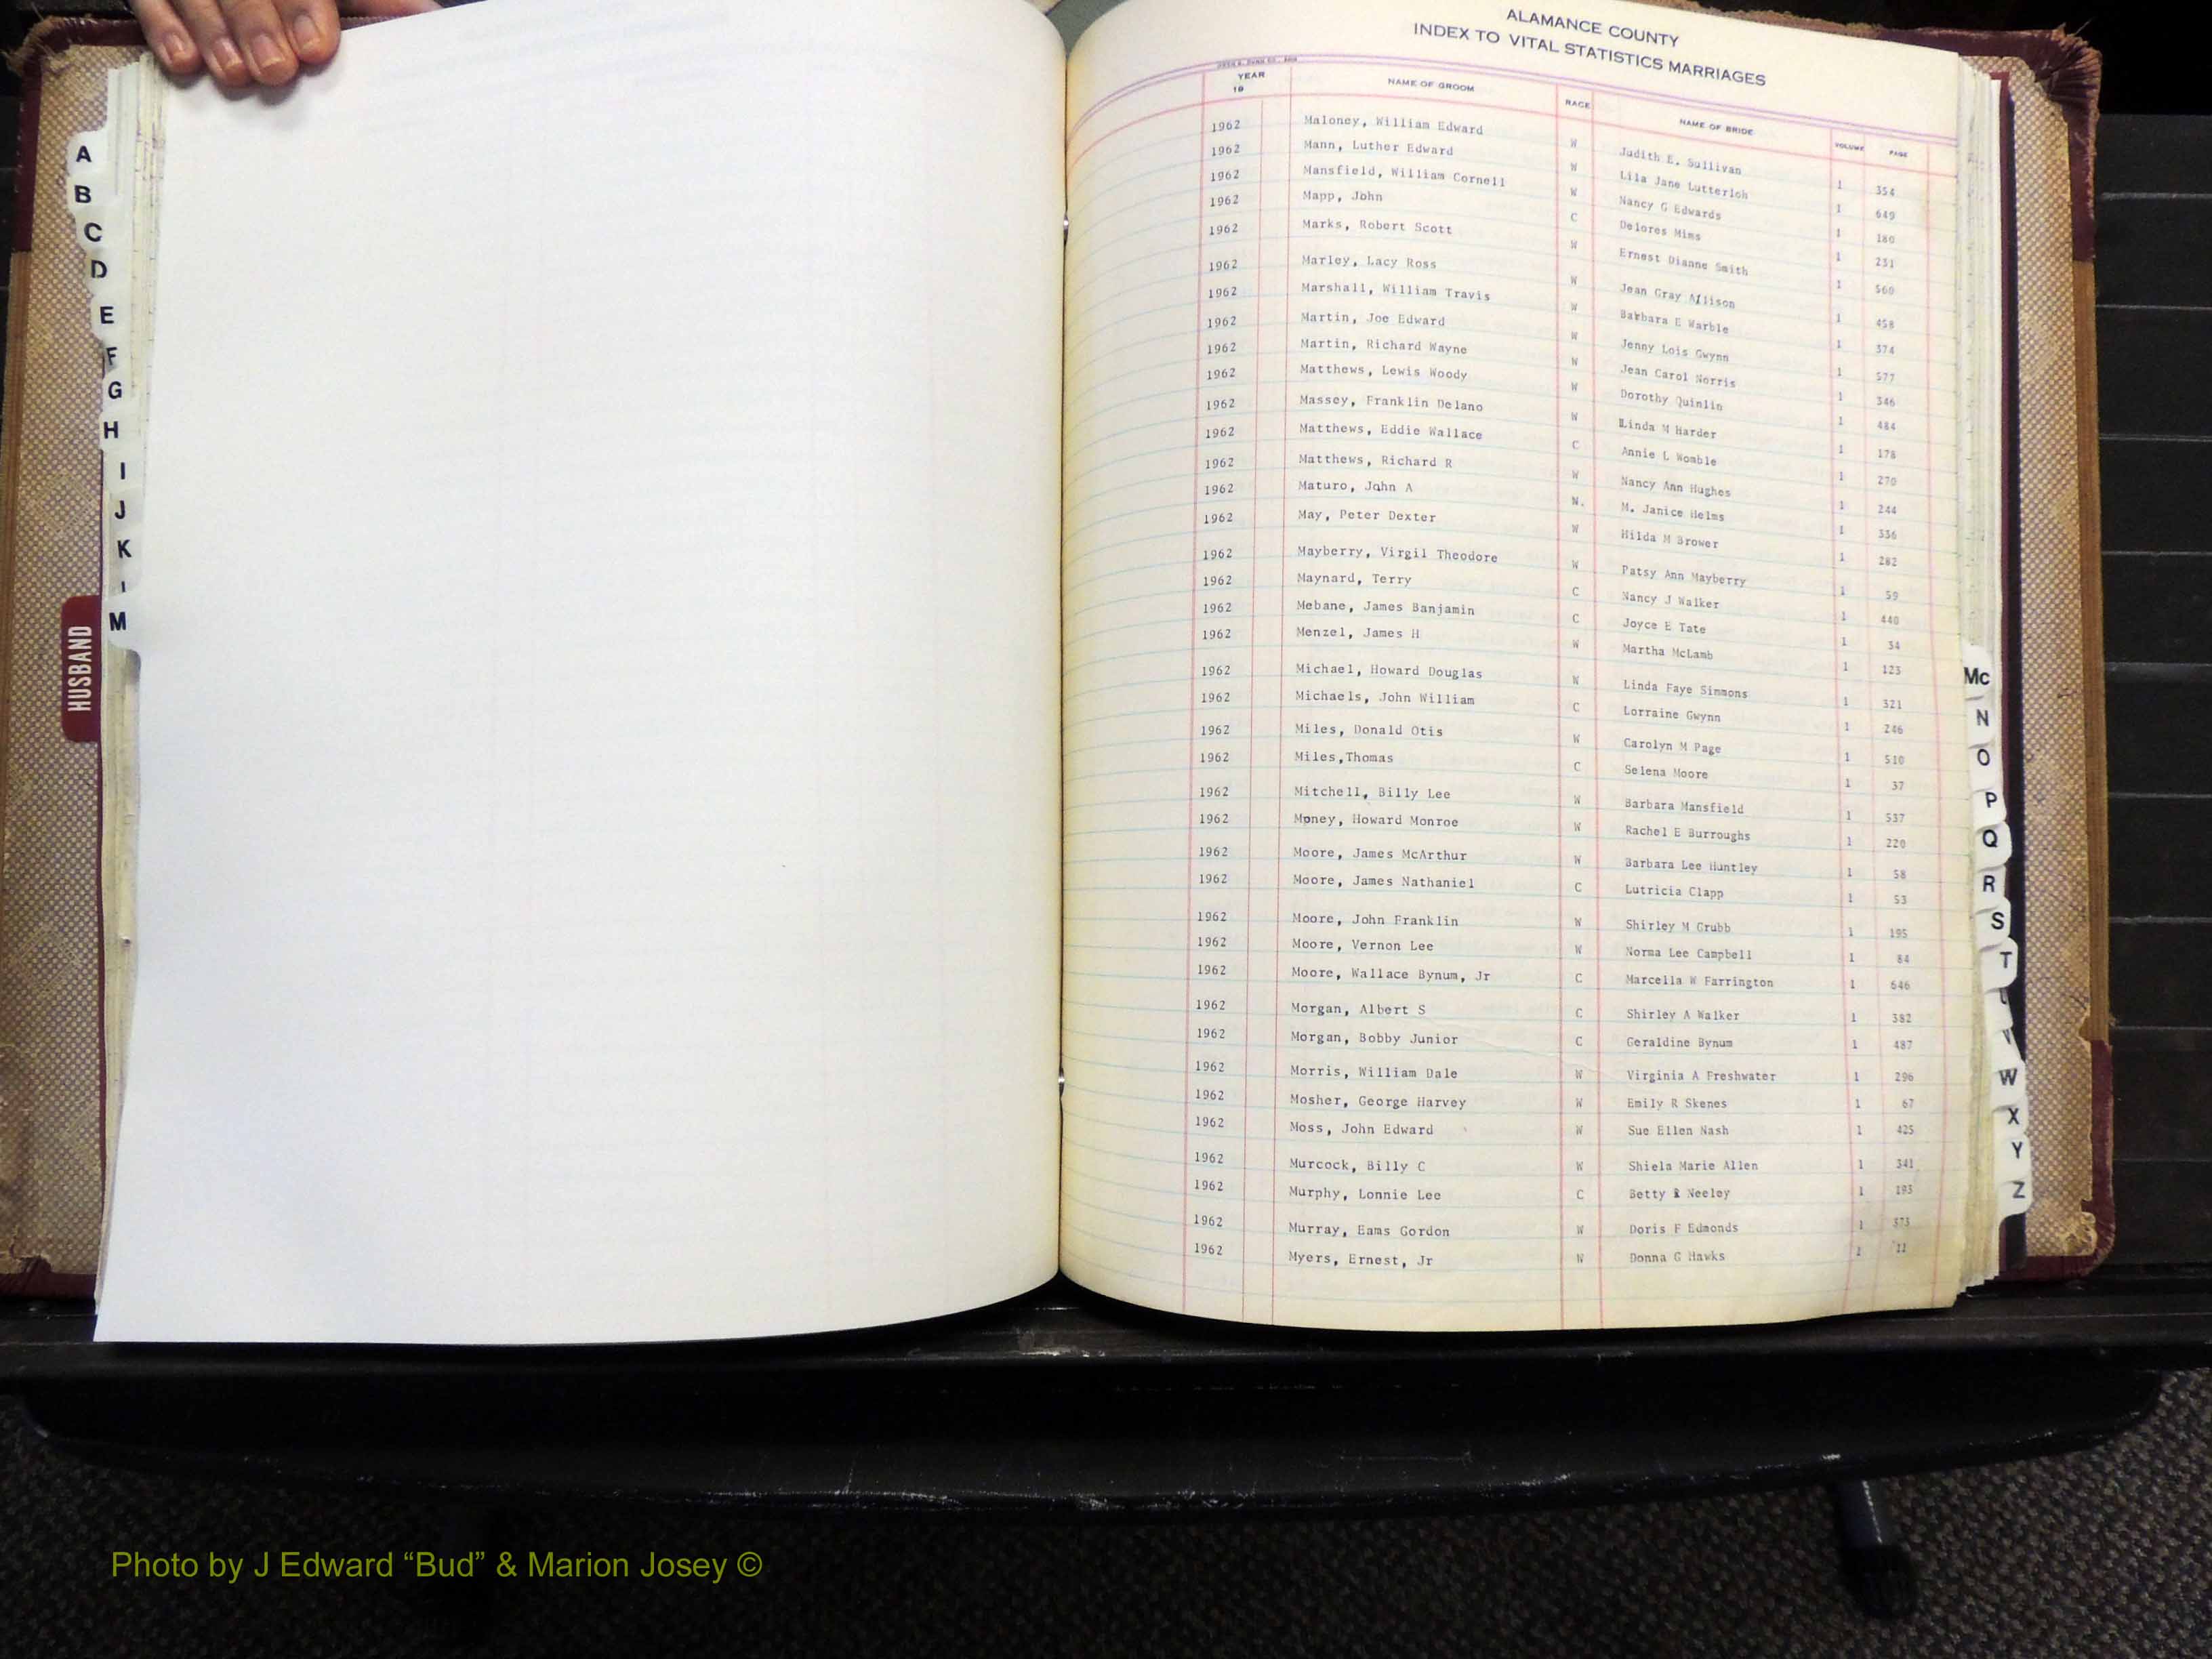 ALAMANCE COUNTY
INDEX TO VITAL STATISTICS MARRIAGES
YEAR 19 NAME OF GROOM RACE NAME OF BRIDE VOLUME PAGE
1962 Maloney, William Edward W Judith E. Sullivan 1 354
1962 Mann, Luther Edward W Lila Jane Lutterloh 1 649
1962 Mansfield, William Cornell W Nancy G Edwards 1 180
1962 Mapp, John C Delores Mims 1 231
1962 Marks, Robert Scott W Ernest Dianne Smith 1 560
1962 Marley, Lacy Ross W Jean Gray Allison 1 458
1962 Marshall, William Travis W Barbara E Warble 1 374
1962 Martin, Joe Edward W Jenny Lois Gwynn 1 577
1962 Martin, Richard Wayne W Jean Carol Norris 1 346
1962 Matthews, Lewis Woody W Dorothy Quinlin 1 484
1962 Massey, Franklin Delano W Linda M Harder 1 178
1962 Matthews, Eddie Wallace C Annie L Womble 1 270
1962 Matthews, Richard R W Nancy Ann Hughes 1 244
1962 Maturo, John A W. M. Janice Helms 1 336
1962 May, Peter Dexter W Hilda M Brower 1 282
1962 Mayberry, Virgil Theodore W Patsy Ann Mayberry 1 59
1962 Maynard, Terry C Nancy J Walker 1 440
1962 Mebane, James Banjamin C Joyce E Tate 1 34
1962 Menzel, James H W Martha McLamb 1 123
1962 Michael, Howard Douglas W Linda Faye Simmons 1 321
1962 Michaels, John William C Lorraine Gwynn 1 246
1962 Miles, Donald Otis W Carolyn M Page 1 510
1962 Miles,Thomas C Selena Moore 1 37
1962 Mitchell, Billy Lee W Barbara Mansfield 1 537
1962 Money, Howard Monroe W Rachel E Burroughs 1 220
1962 Moore, James McArthur W Barbara Lee Huntley 1 58
1962 Moore, James Nathaniel C Lutricia Clapp 1 53
1962 Moore, John Franklin W Shirley M Grubb 1 195
1962 Moore, Vernon Lee W Norma Lee Campbell 1 84
1962 Moore, Wallace Bynum, Jr C Marcella W Farrington 1 646
1962 Morgan, Albert S C Shirley A Walker 1 382
1962 Morgan, Bobby Junior C Geraldine Bynum 1 487
1962 Morris, William Dale W Virginia A Freshwater 1 296
1962 Mosher, George Harvey W Emily R Skenes 1 67
1962 Moss, John Edward W Sue Ellen Nash 1 425
1962 Murcock, Billy C W Shiela Marie Allen 1 341
1962 Murphy, Lonnie Lee C Betty R Neeley 1 193
1962 Murray, Eams Gordon W Doris F Edmonds 1 373
1962 Myers, Ernest, Jr W Donna G Hawks 1 11
A
B
C
D
E
F
G
H
I
J
K
M
HUSBAND
Mc
N
O
P
Q
R
S
T
U
V
W
X
Y
Z
Photo by J Edward “Bud” & Marion Josey ©